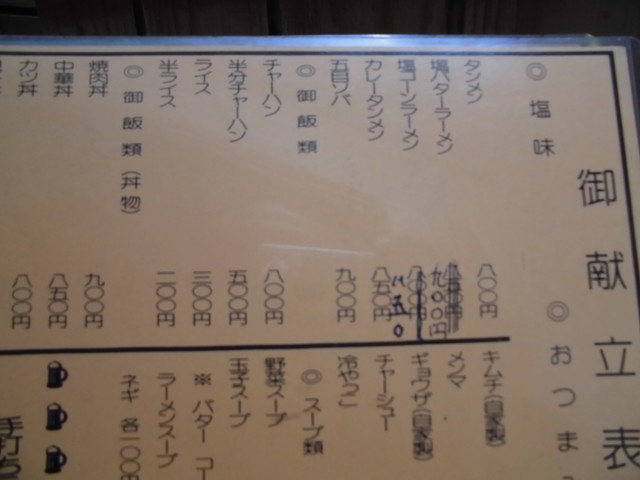 御献立表
◎ 塩味
タンメン 八〇〇円
塩バターラーメン 九〇〇円
塩コーンラーメン 八五〇
カレータンメン 八五〇円
五目ソバ 九〇〇円
◎ 御飯類
チャーハン 八〇〇円
半分チャーハン 五〇〇円
ライス 三〇〇円
半ライス 二〇〇円
◎ 御飯類(丼物)
焼肉丼 九〇〇円
中華丼 八五〇円
カツ丼 八〇〇円
◎ おつま
キムチ(自家製)
メンマ
ギョウザ(自家製)
チャーシュー
冷やっこ
◎ スープ類
野菜スープ
玉子スープ
※ バター コー
ラーメンスープ
ネギ 各一〇〇円
手打ち